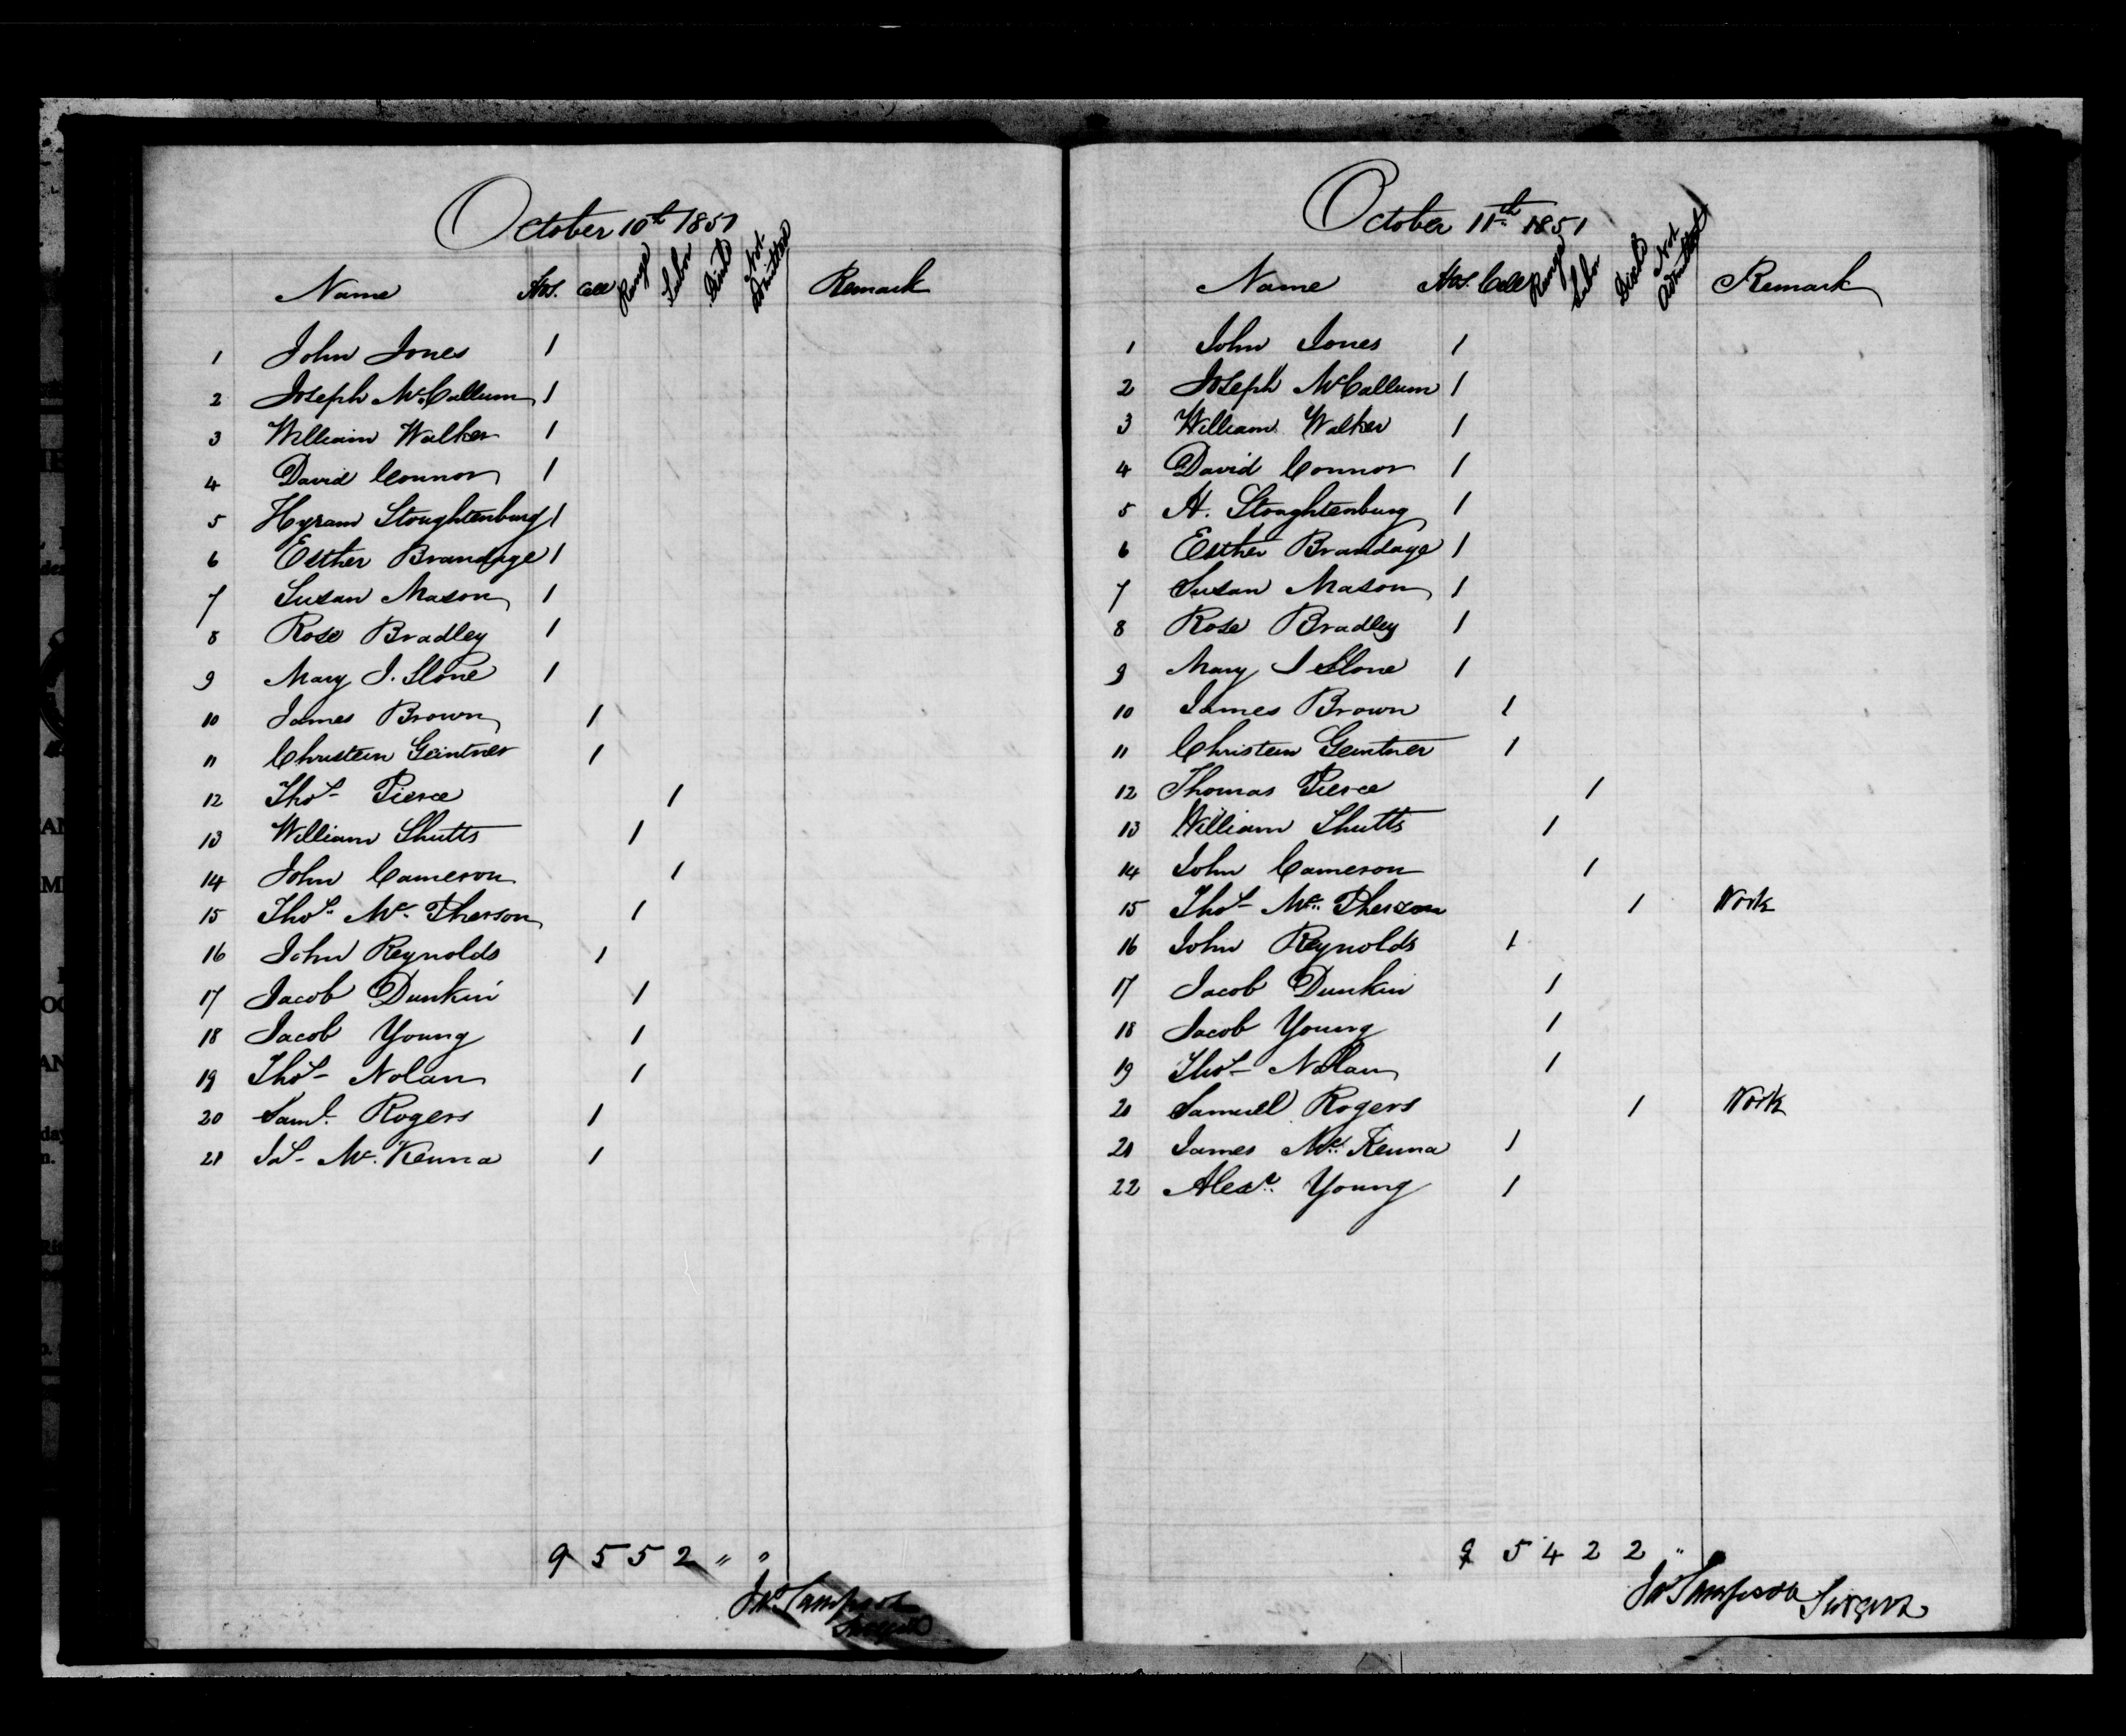 October 10th 1851
Name Hos. Cell Range Labor Disch'd Not Admitted Remark
1 John Jones 1
2 Joseph McCallum 1
3 William Walker 1
4 David Connor 1
5 Hyram Stoughtenburg 1
6 Esther Brandage 1
7 Susan Mason 1
8 Rose Bradley 1
9 Mary J. Slone 1
10 James Brown 1
11 Christein Geintner 1
12 Thos. Pierce 1
13 William Shutts 1
14 John Cameron 1
15 Thos. Mc. Pherson 1
16 John Reynolds 1
17 Jacob Dunkin 1
18 Jacob Young 1
19 Thos. Nolan 1
20 Saml. Rogers 1
21 Js. Mc. Kenna 1
9 5 5 2 " "
Jas. Sampson
Surgeon
October 11th 1851
Name Hos. Cell Range Labor Disch'd Not Admitted Remark
1 John Jones 1
2 Joseph McCallum 1
3 William Walker 1
4 David Connor 1
5 H. Stoughtenburg 1
6 Esther Brandage 1
7 Susan Mason 1
8 Rose Bradley 1
9 Mary J Slone 1
10 James Brown 1
11 Christein Geintner 1
12 Thomas Pierce 1
13 William Shutts 1
14 John Cameron 1
15 Thos. Mc. Pherson 1 Work
16 John Reynolds 1
17 Jacob Dunkin 1
18 Jacob Young 1
19 Thos. Nolan 1
20 Samuel Rogers 1 Work
21 James Mc. Kenna 1
22 Alexr. Young 1
9 5 4 2 2 "
Jas Sampson Surgeon